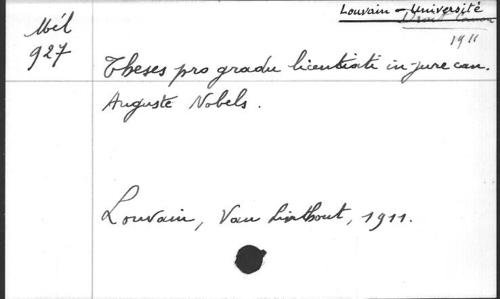 Louvain - Université
Droit Canon
1911
Mél
927
Theses pro gradu licentiati in jure can.
Auguste Nobels.
Louvain, Van Linthout, 1911.